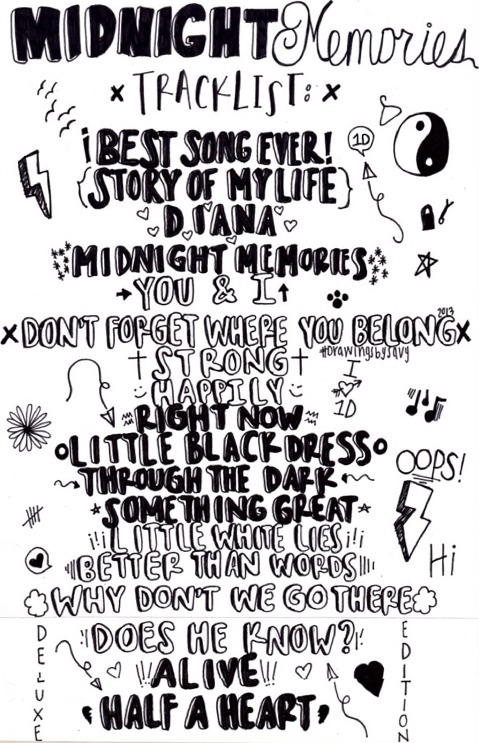 MIDNIGHT Memories
x TRACKLIST: x
1D
¡BEST SONG EVER!
{STORY OF MY LIFE}
DIANA
MIDNIGHT MEMORIES
YOU & I
x DON'T FORGET WHERE YOU BELONG x
2013
#drawingsbysavy
STRONG
I
1D
HAPPILY
RIGHT NOW
LITTLE BLACK DRESS
THROUGH THE DARK
OOPS!
SOMETHING GREAT
LITTLE WHITE LIES
BETTER THAN WORDS
Hi
WHY DON'T WE GO THERE
DOES HE KNOW?
ALIVE
HALF A HEART
DELUXE
EDITION